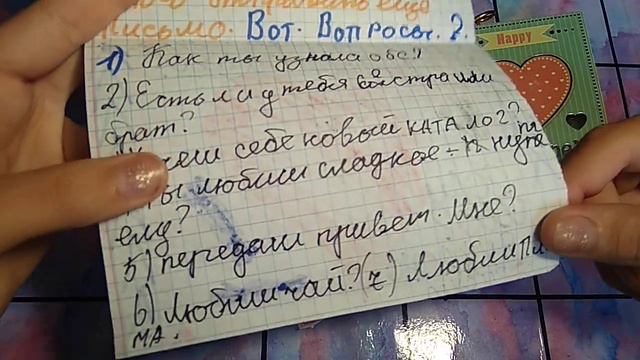 письмо. Вот. Вопросы. 2.
1) Как ты узнала обо
2) Есть ли у тебя сестра или
брат?
себе новый каталог?
ты любиш сладкое
ему?
5) передаш привет. Мне?
6) Любиш чай? (z) Любиш
ма.
Happy